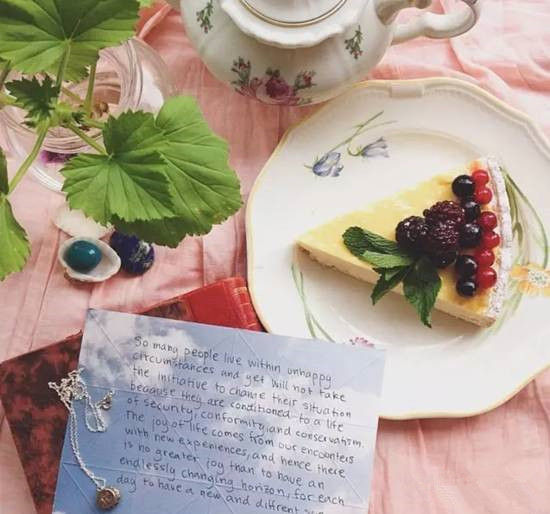 So many people live within unhappy
circumstances and yet will not take
the initiative to change their situation
because they are conditioned to a life
of security, conformity, and conservatism.
The joy of life comes from our encounters
with new experiences, and hence there
is no greater joy than to have an
endlessly changing horizon, for each
day to have a new and diffrent sun